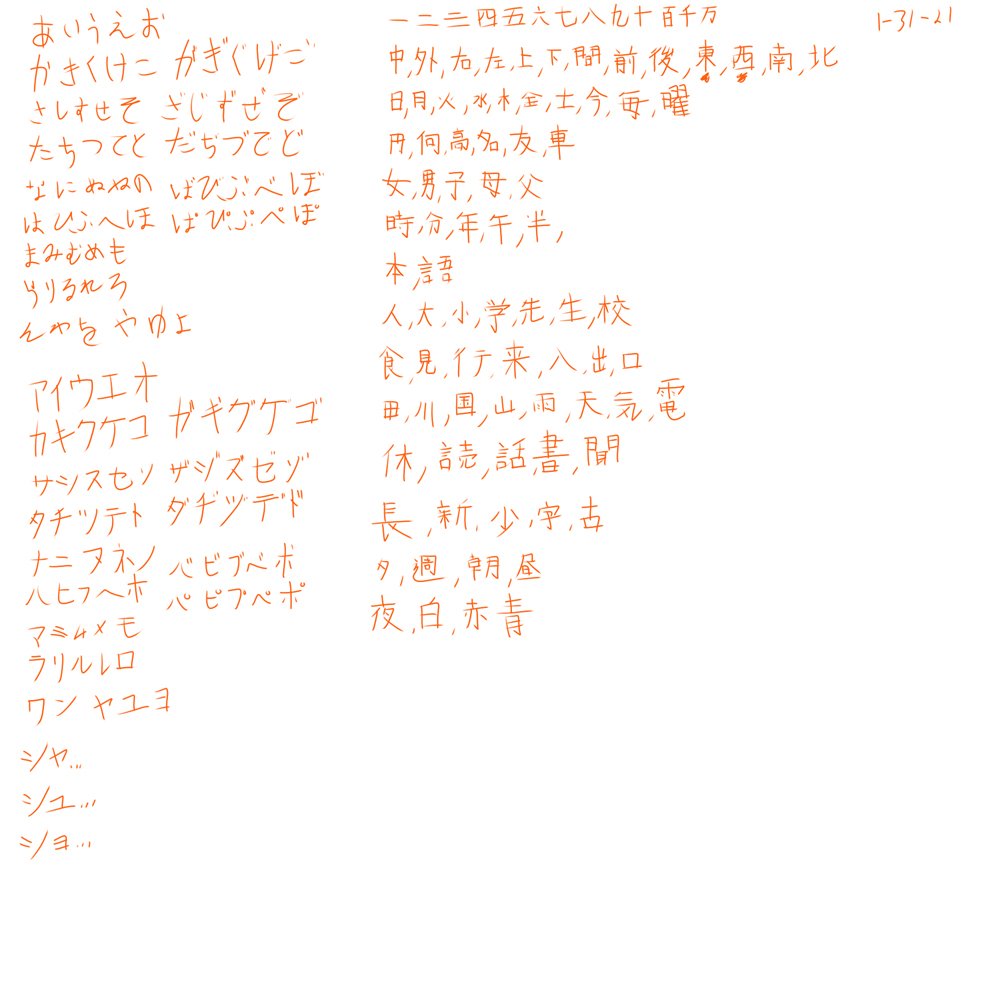 あいうえお
かきくけこ がぎぐげご
さしすせそ ざじずぜぞ
たちつてと だぢづでど
なにぬねの ばびぶべぼ
はひふへほ ぱぴぷぺぽ
まみむめも
らりるれろ
んわを やゆよ
アイウエオ
カキクケコ ガギグケゴ
サシスセソ ザジズゼゾ
タチツテト ダヂヅデド
ナニヌネノ バビブベボ
ハヒフヘホ パピプペポ
マミムメモ
ラリルレロ
ワン ヤユヨ
シャ...
シュ...
ショ...
一二三四五六七八九十百千万
中,外,右,左,上,下,間,前,後,東,西,南,北
日,月,火,水,木,金,土,今,毎,曜
円,何,高,名,友,車
女,男,子,母,父
時,分,年,午,半,
本,語
人,大,小,学,先,生,校
食,見,行,来,入,出,口
田,川,国,山,雨,天,気,電
休,読,話,書,聞
長,新,少,字,古
夕,週,朝,昼
夜,白,赤青
1-31-21